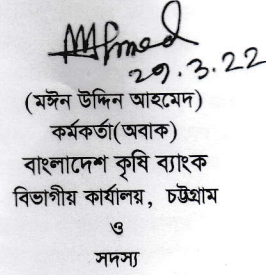 Ahmed
29.3.22
(মঈন উদ্দিন আহমেদ)
কর্মকর্তা(অবাক)
বাংলাদেশ কৃষি ব্যাংক
বিভাগীয় কার্যালয়, চট্টগ্রাম
ও
সদস্য